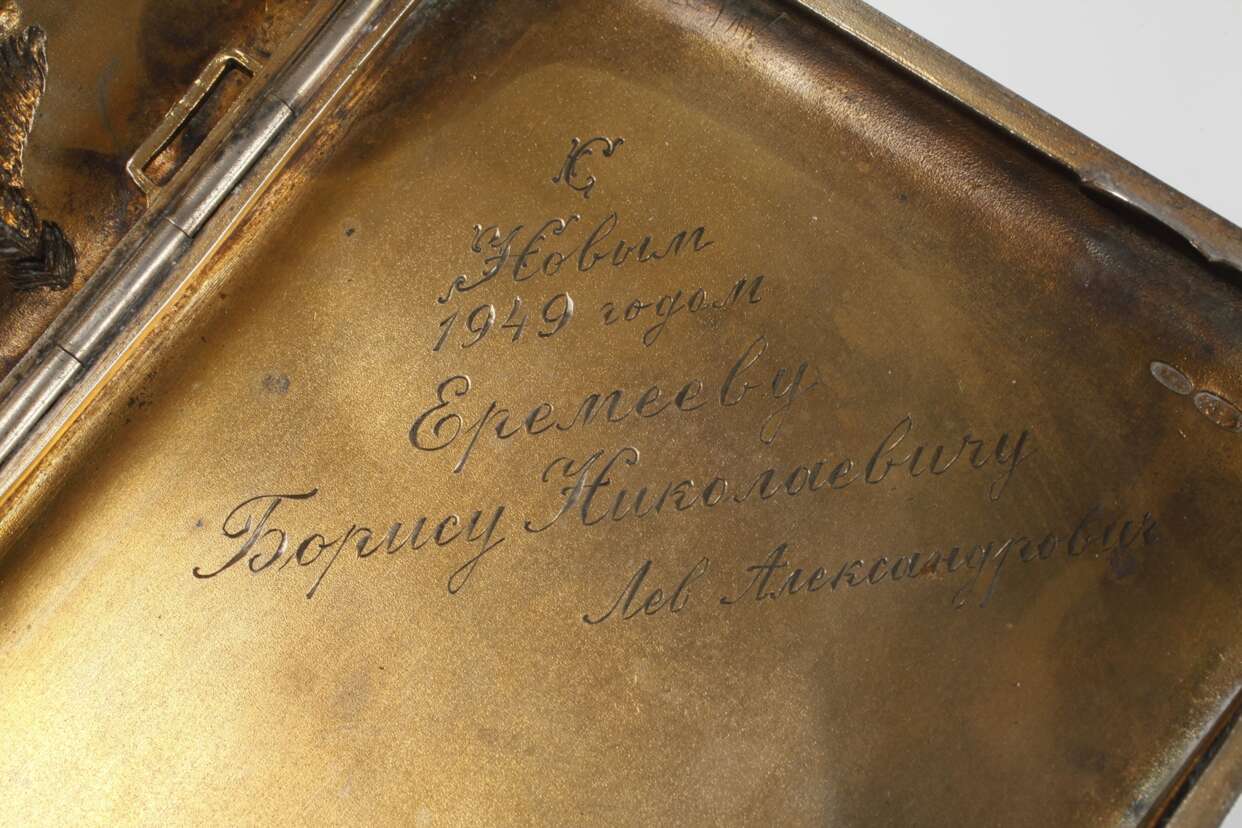 С
Новым
1949 годом
Еремееву
Борису Николаевичу
Лев Александрович